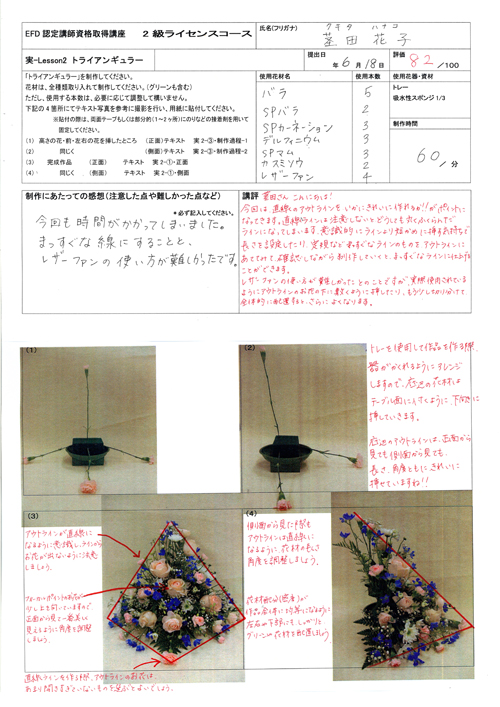 EFD 認定講師資格取得講座　2 級ライセンスコース
氏名(フリガナ)
クキタ ハナコ
茎田 花子
実-Lesson2 トライアンギュラー
提出日
年 6 月 18 日
評価
82 /100
「トライアンギュラー」を制作してください。
花材は、全種類取り入れて制作してください。(グリーンも含む)
ただし、使用する本数は、必要に応じて調整して構いません。
下記の4箇所にてテキスト写真を参考に撮影を行い、用紙に貼付してください。
※貼付の際は、両面テープもしくは部分的(1~2ヶ所)にのりなどの接着剤を用いて
固定してください。
(1) 高さの花・前・左右の花を挿したところ (正面)テキスト 実2-③・制作過程-1
(2) 同じく (側面)テキスト 実2-③・制作過程-2
(3) 完成作品 (正面) テキスト 実2-①・正面
(4) 同じく (側面) テキスト 実2-①・側面
使用花材名
使用本数
バラ 5
SPバラ 2
SPカーネーション 3
デルフィニウム 3
SPマム 3
カスミソウ 2
レザーファン 4
使用花器・資材
トレー
吸水性スポンジ 1/3
制作時間
60 / 分
制作にあたっての感想(注意した点や難しかった点など)
*必ず記入してください。
今回も時間がかかってしまいました。
まっすぐな線にすることと、
レザーファンの使い方が難しかったです。
講評 茎田さん こんにちは!
今回は、直線のアウトラインをいかにきれいに作れるか!!がポイントに
なってきます。直線的ラインは注意しないとどうしても丸くふくらんで
ラインになってしまいます。意識的にラインより短かめに挿す気持ちで
長さを設定したり、定規などまっすぐなラインのものをアウトラインに
あてはめて、確認しながら制作していくと、まっすぐなラインに仕上げる
ことができます。
レザーファンの使い方が難しかったとのことですが、実際使用されている
ようにアウトラインのお花の下に敷くように挿したり、もう少し切り分けて
全体的に配置すると、さらによくなります。
(1)
(2)
トレーを使用して作品を作る際、
器がかくれるようにアレンジ
しますので、底辺の花材は
テーブル面につくように、下向きに
挿していきます。
底辺のアウトラインは、正面から
見ても側面から見ても、
長さ、角度ともにきれいに
挿せていますね!!
(3)
アウトラインが直線に
なるように意識し、ラインから
お花が出ないように注意
しましょう。
フォーカルポイントのお花が
少し上を向いていますので
正面から見て一番美しく
見えるように角度を調整
しましょう。
直線ラインを作る際、アウトラインのお花は、
あまり開きすぎていないものを選ぶとよいでしょう。
(4)
側面から見た際も
アウトラインは直線に
なるように、花材の長さ
角度を調整しましょう。
花材配分(密度)が
作品全体に均等になるように
左右の下部にも、しっかりと
グリーンの花材を配置しましょう